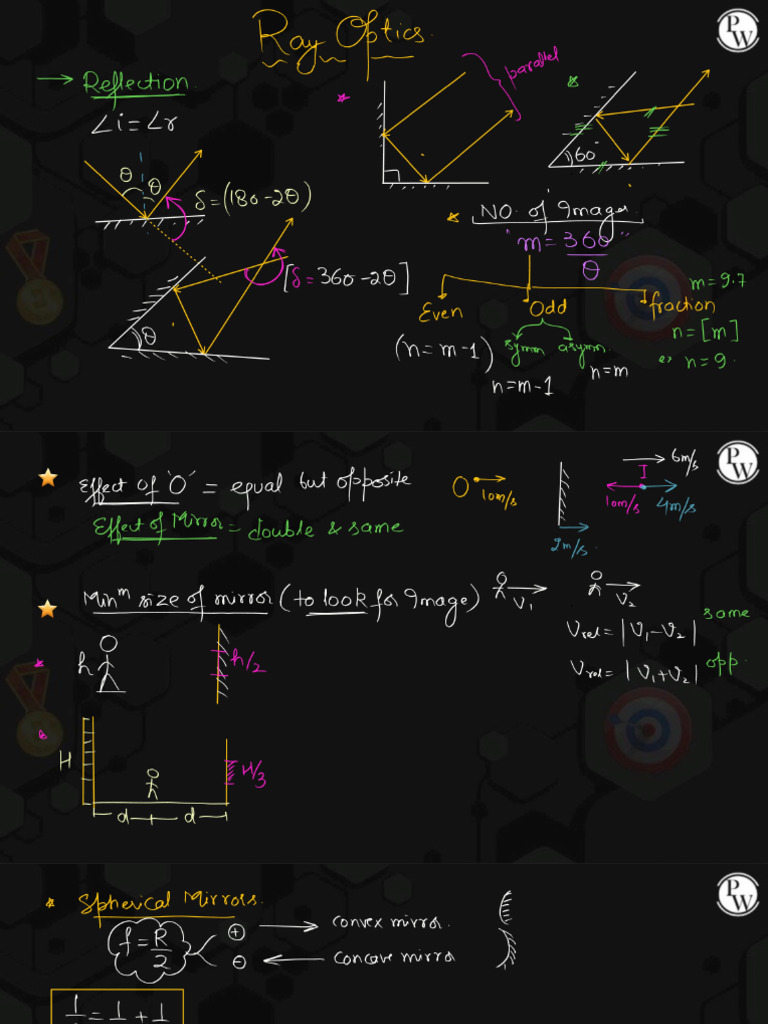 Ray Optics
PW
→ Reflection
∠i = ∠r
θ θ
δ = (180 - 2θ)
[δ = 360 - 2θ]
θ
* parallel
*
60°
* No. of Images
"m = 360/θ"
Even Odd fraction
m = 9.7
(n = m - 1)
symm asymm.
n = m - 1
n = m
n = [m]
n = 9.
PW
Effect of 'O' = equal but opposite
Effect of Mirror = double & same
O 10m/s
2m/s.
6m/s
I
10m/s 4m/s
Minᵐ size of mirror (to look for Image)
V₁ V₂
Vrel = |V₁ - V₂| same
Vrel = |V₁ + V₂| opp.
* h h/2
H H/3
d d
PW
* Spherical Mirrors.
f = R/2
⊕ → convex mirror.
⊖ ← concave mirror
1 = 1 + 1